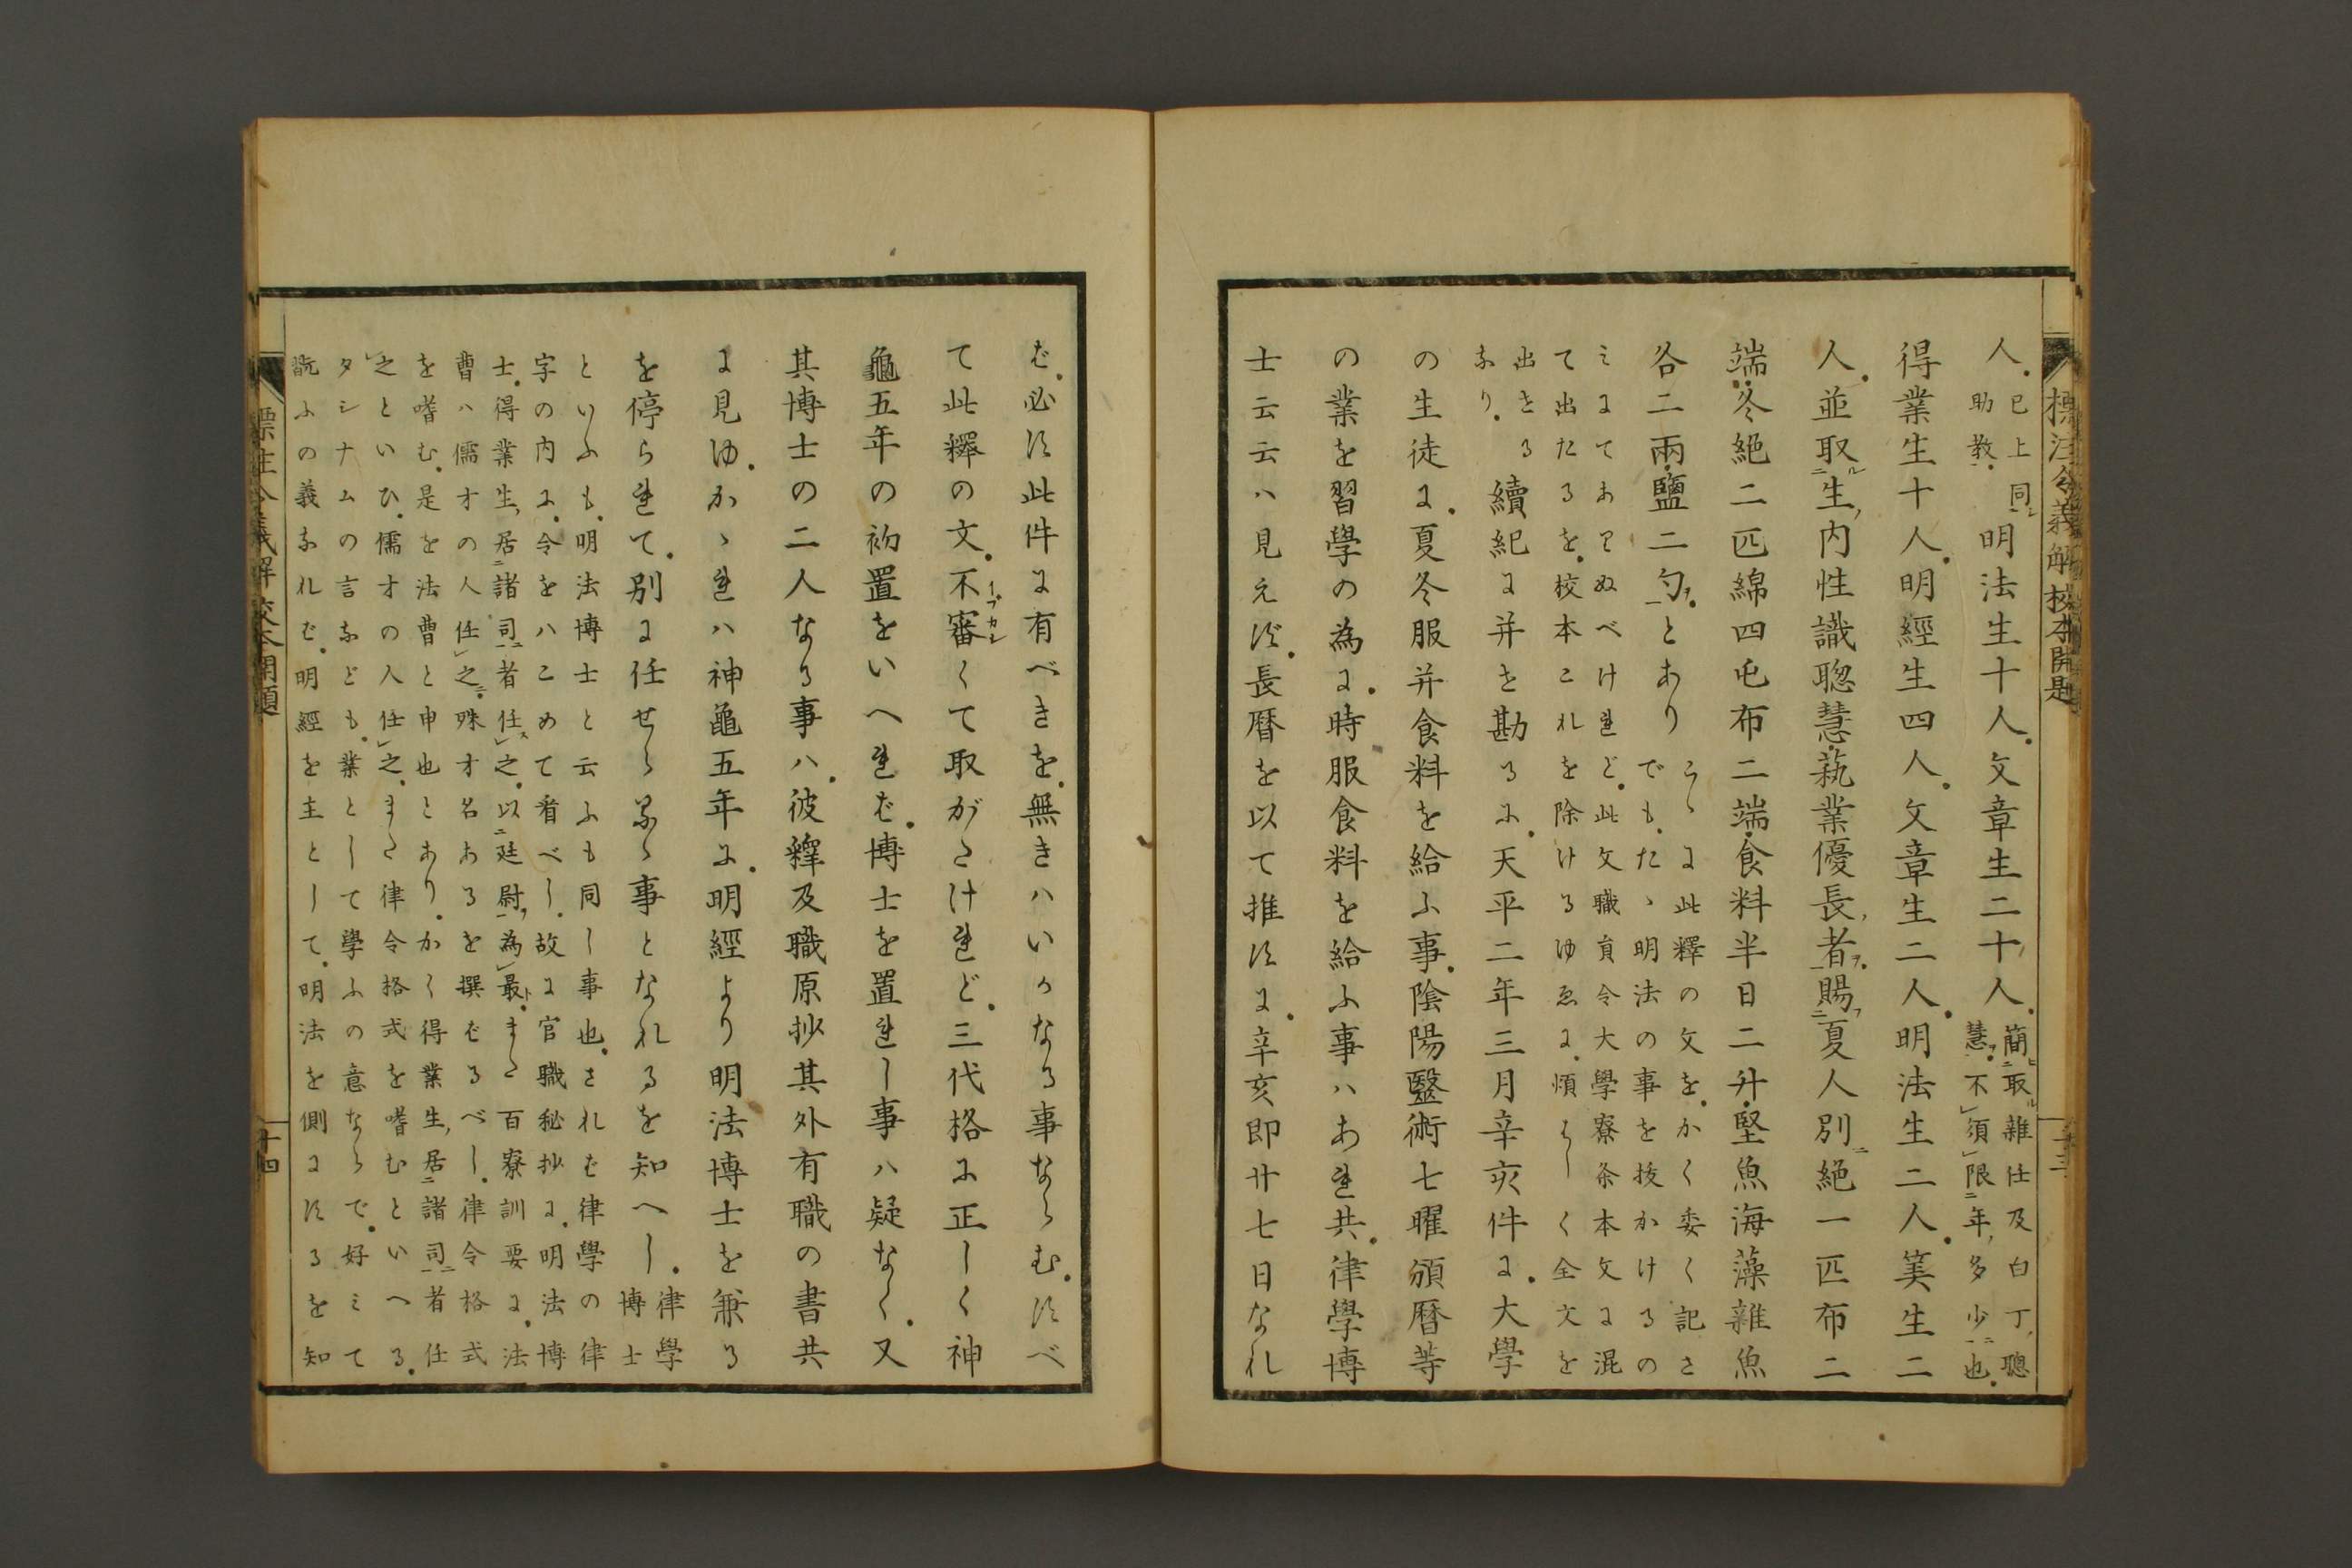 標注令義解校本開題
人。已上同助教。明法生十人。文章生二十人。簡取雜任及白丁聰慧。不須限年多少也。
得業生十人。明經生四人。文章生二人。明法生二人。筭生二
人。並取生内性識聰慧。藝業優長者。賜夏人別絁一匹布二
端。冬絁二匹綿四屯布二端。食料半日二升。堅魚海藻雜魚
各二兩。鹽二勺。とあり
こゝに此釋の文を。かく委く記さ
でも。たゝ明法の事を技かけるの
みにてありぬべけれど。此文職員令大學寮条本文に混
て出たるを。校本これを除けるゆゑに。煩はしく全文を
出せる
なり。
續紀に并せ勘るに。天平二年三月辛亥件に。大學
の生徒に。夏冬服并食料を給ふ事。陰陽醫術七曜頒暦等
の業を習學の為に。時服食料を給ふ事ハあれ共。律學博
士云云ハ見えず。長暦を以て推すに。辛亥即廿七日なれ
ば。必ず此件に有べきを。無きハいかなる事ならむ。すべ
て此釋の文。不審イブカシくて取がたけれど。三代格に正しく神
龜五年の初置をいへれば。博士を置れし事ハ疑なく。又
其博士の二人なる事ハ。彼釋及職原抄其外有職の書共
に見ゆ。かゝれハ神龜五年に。明經より明法博士を兼る
を停られて。別に任せらるゝ事となれるを知へし。律學
博士
といふも。明法博士と云ふも同し事也。されば律學の律
字の内に。令をハこめて看べし。故に官職秘抄に。明法博
士。得業生。居諸司者任之。以廷尉為最。また百寮訓要に。法
曹ハ儒才の人任之。殊才名あるを撰ばるべし。律令格式
を嗜む。是を法曹と申也とあり。かく得業生。居諸司者任
之といひ。儒才の人任之。また律令格式を嗜むといへる。
タシナムの言なども。業として學ふの意ならで。好みて
翫ふの義なれば。明經を主として。明法を側にするを知
標注令義解校本開題
十四